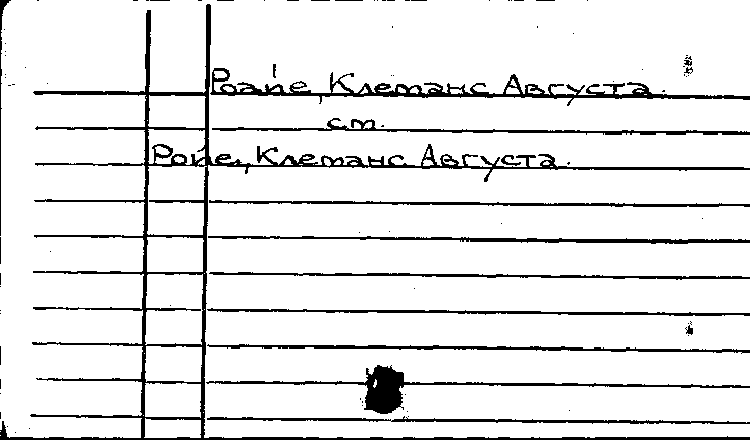 Роайе, Клеманс Августа.
см.
Ройе, Клеманс Августа.